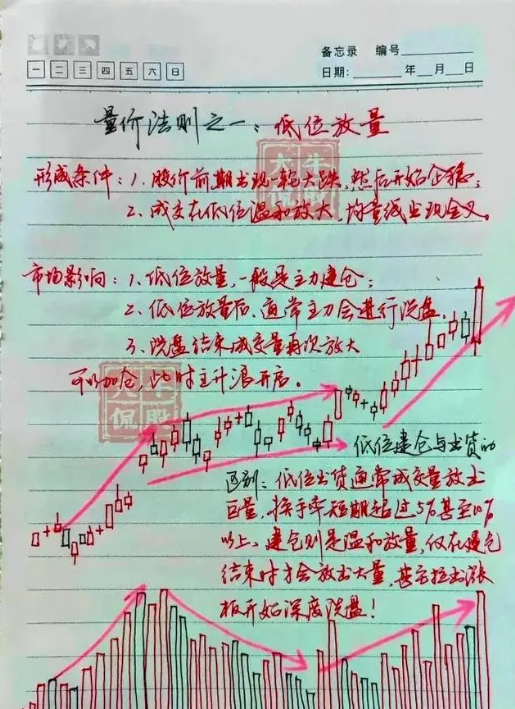 备忘录 编号
一 二 三 四 五 六 日
日期: 年 月 日
量价法则之一：低位放量
形成条件：1、股价前期出现一轮大跌，然后开始企稳；
2、成交在低位温和放大，均量线出现金叉。
市场影响：1、低位放量，一般是主力建仓；
2、低位放量后，通常主力会进行洗盘，
3、洗盘结束成交量再次放大
可以加仓，此时主升浪开启。
大牛
侃股
大牛
侃股
低位建仓与出货的
区别：低位出货通常成交量放出
巨量，换手率短期超过5%甚至10%
以上，建仓则是温和放量，仅在建仓
结束时才会放出大量，甚至拉出涨
板开始深度洗盘！